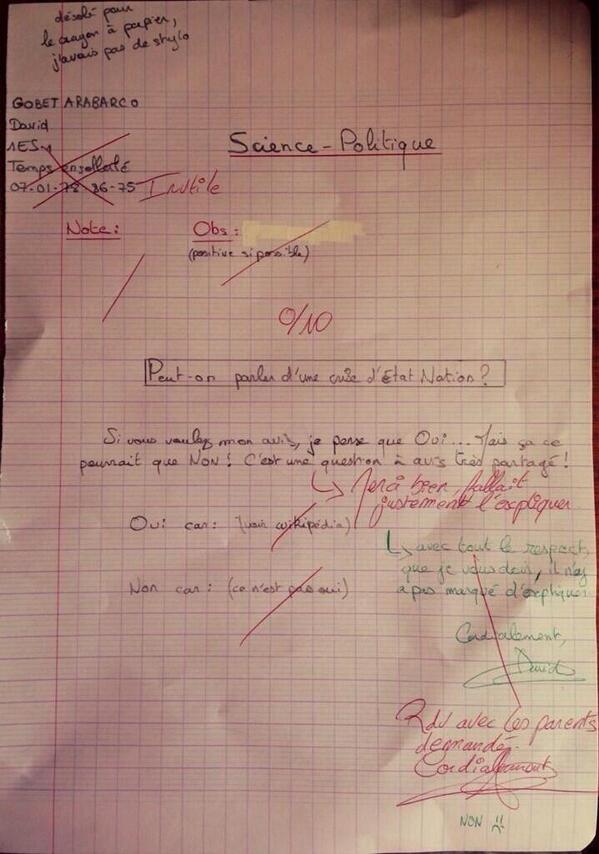 désolé pour
le crayon à papier,
j'avais pas de stylo
GOBET ARABARCO
David
1ES4
Temps ensoleillé
07-01-78-86-75 Inutile
Science-Politique
Note:
Obs:
(positive si possible)
0/10
Peut-on parler d'une crise d'Etat Nation?
Si vous voulez mon avis, je pense que Oui... Mais ça ce
pourrait que NON! C'est une question à avis très partagé!
Merci bien, fallait
justement l'expliquer
Oui car: (voir wikipédia)
avec tout le respect
que je vous doit, il n'y
a pas marqué d'expliquer
Non car: (ce n'est pas oui)
Cordialement,
David
Rdv avec les parents
demandé.
Cordialement
NON